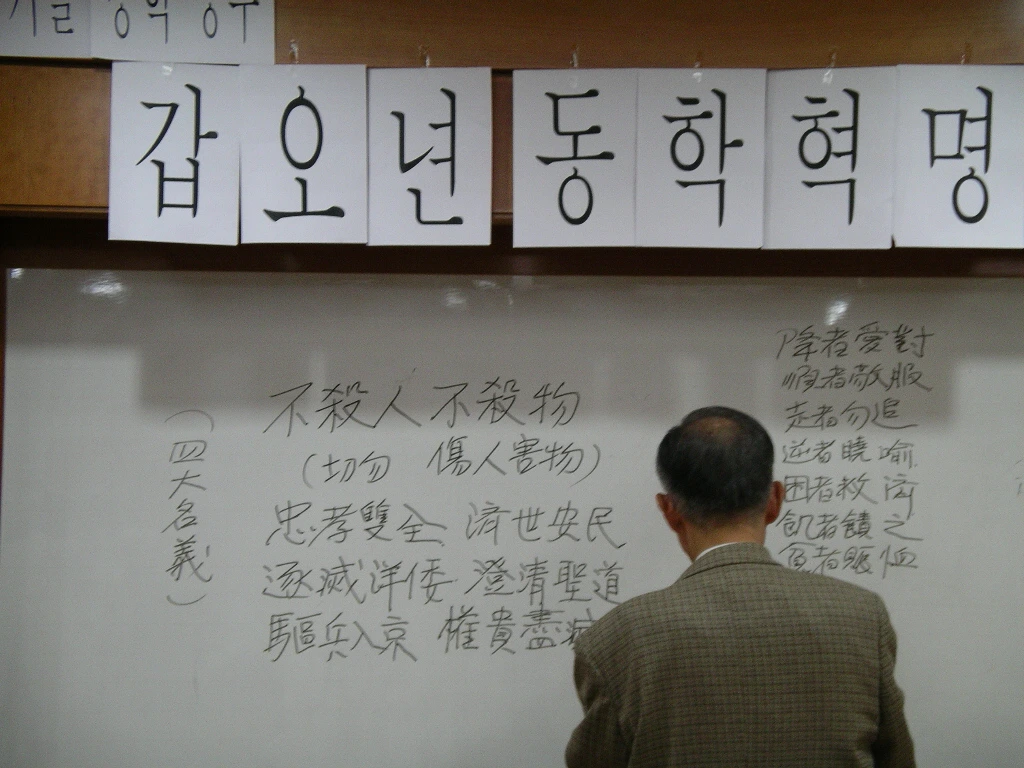 갑오년 동학혁명
(四大名義)
不殺人 不殺物
(切勿 傷人害物)
忠孝雙全 済世安民
逐滅洋倭 澄清聖道
驅兵入京 権貴盡
降者愛對
順者敬服
走者勿追
逆者曉喻
困者救済
飢者饋之
貧者賑恤